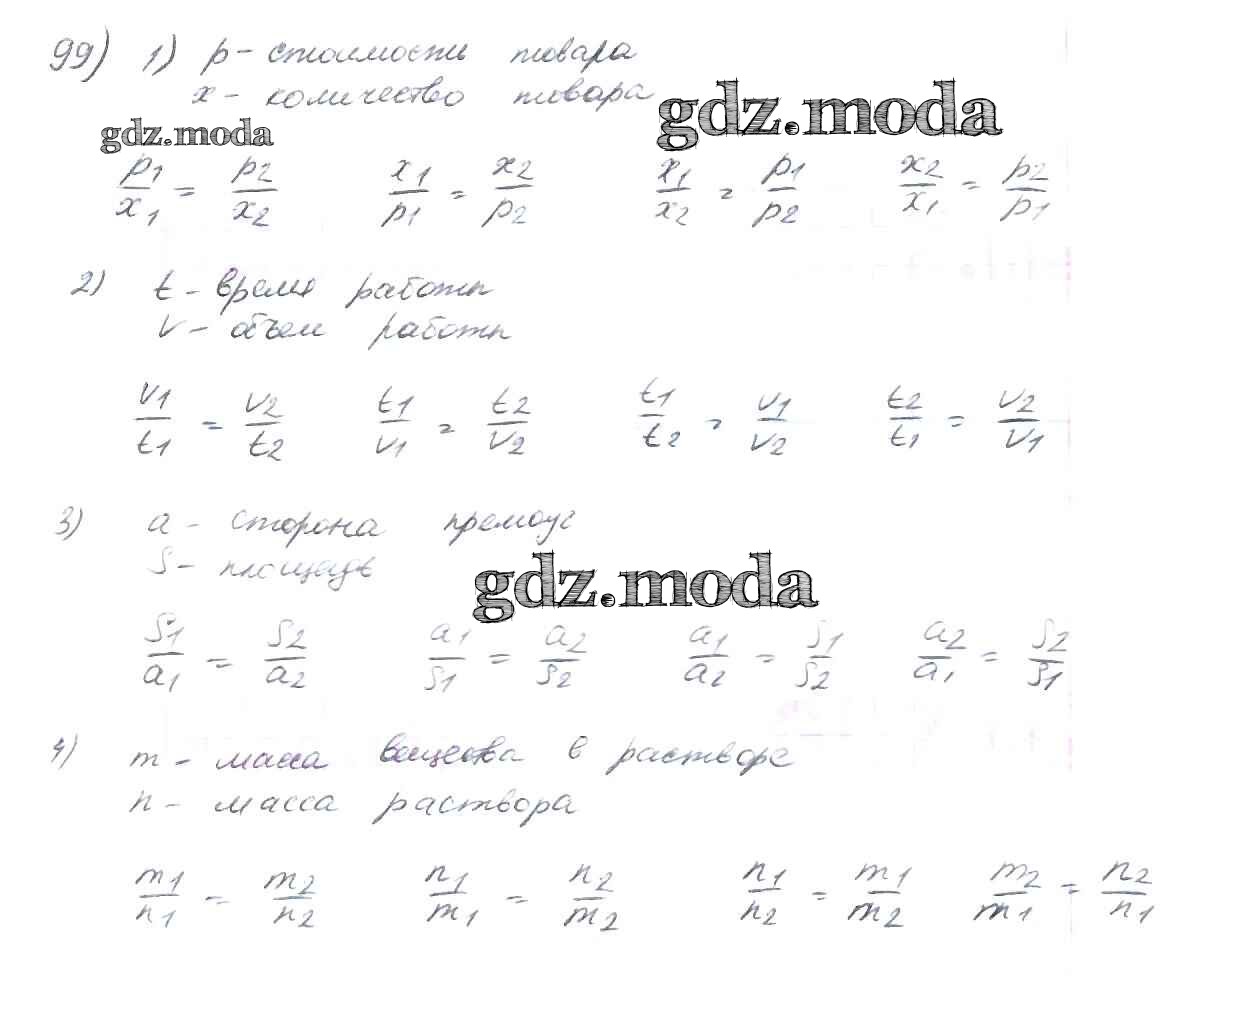 99) 1) p - стоимость товара
x - количество товара
gdz.moda
gdz.moda
p1/x1 = p2/x2 x1/p1 = x2/p2 x1/x2 = p1/p2 x2/x1 = p2/p1
2) t - время работы
V - объем работы
V1/t1 = V2/t2 t1/V1 = t2/V2 t1/t2 = V1/V2 t2/t1 = V2/V1
3) a - сторона премоуг
S - площадь
gdz.moda
S1/a1 = S2/a2 a1/S1 = a2/S2 a1/a2 = S1/S2 a2/a1 = S2/S1
4) m - масса вещества в растворе
n - масса раствора
m1/n1 = m2/n2 n1/m1 = n2/m2 n1/n2 = m1/m2 m2/m1 = n2/n1